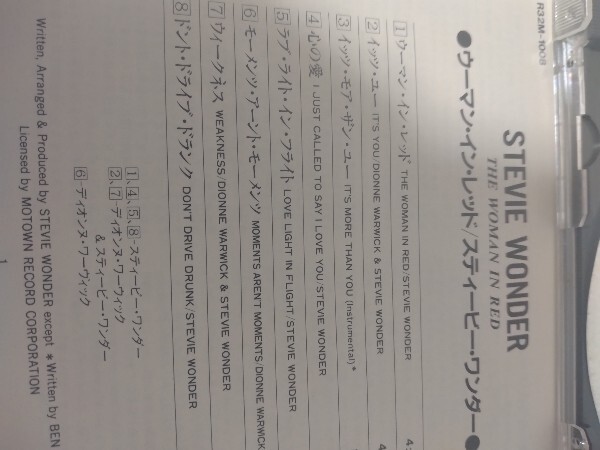 R32M-1008
STEVIE WONDER
THE WOMAN IN RED
●ウーマン・イン・レッド/スティービー・ワンダー●
1 ウーマン・イン・レッド THE WOMAN IN RED/STEVIE WONDER 4:
2 イッツ・ユー IT'S YOU/DIONNE WARWICK & STEVIE WONDER 4
3 イッツ・モア・ザン・ユー IT'S MORE THAN YOU (Instrumental)*
4 心の愛 I JUST CALLED TO SAY I LOVE YOU/STEVIE WONDER
5 ラブ・ライト・イン・フライト LOVE LIGHT IN FLIGHT/STEVIE WONDER
6 モーメンツ・アーント・モーメンツ MOMENTS ARENT MOMENTS/DIONNE WARWICK
7 ウィークネス WEAKNESS/DIONNE WARWICK & STEVIE WONDER
8 ドント・ドライブ・ドランク DON'T DRIVE DRUNK/STEVIE WONDER
1、4、5、8-スティービー・ワンダー
2、7-ディオンヌ・ワーウィック
& スティービー・ワンダー
6-ディオンヌ・ワーウィック
Written, Arranged & Produced by STEVIE WONDER except *Written by BEN
Licensed by MOTOWN RECORD CORPORATION
1